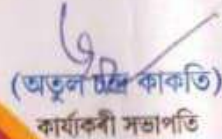 (অতুল চন্দ্ৰ কাকতি)
কাৰ্য্যকৰী সভাপতি